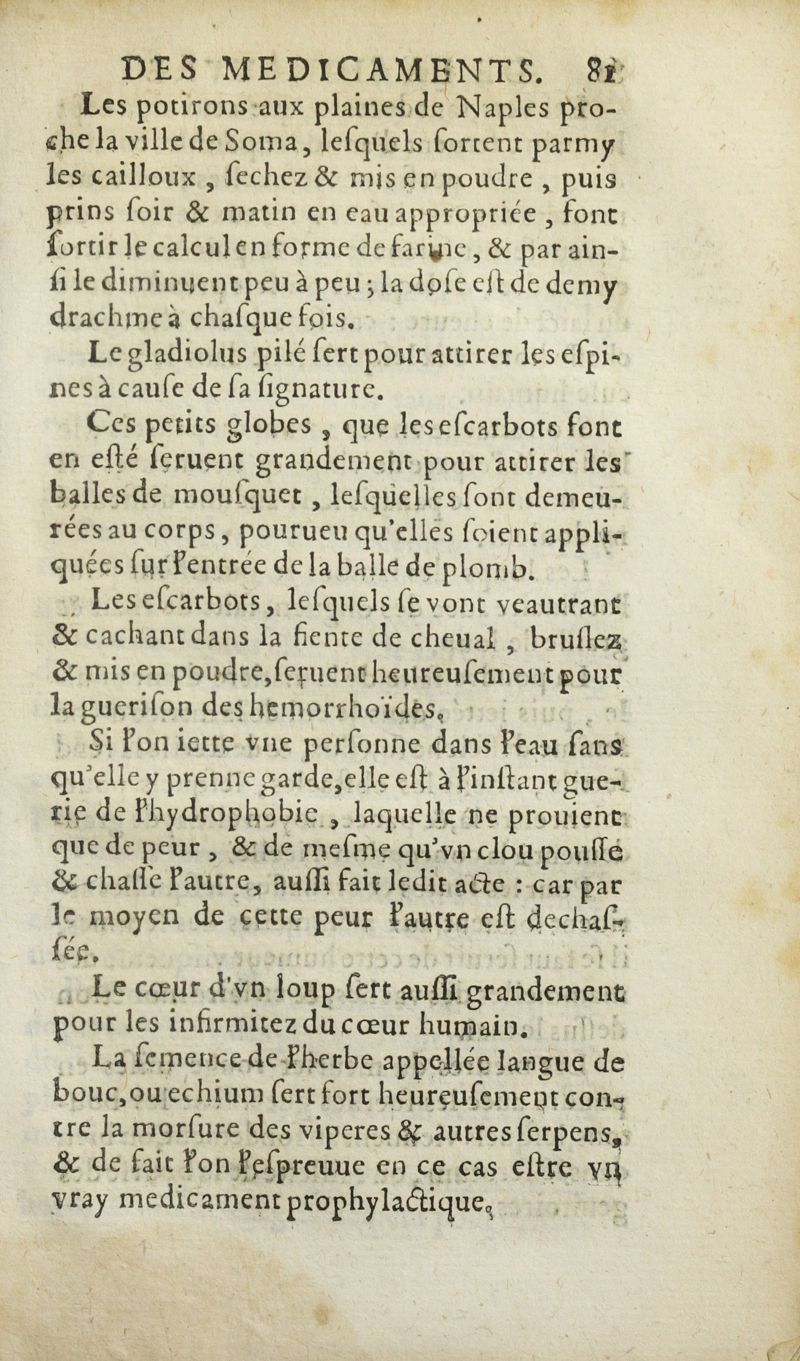 DES MEDICAMENTS. 81
Les potirons aux plaines de Naples pro-
che la ville de Soma, leſquels ſortent parmy
les cailloux , ſechez & mis en poudre , puis
prins ſoir & matin en eau appropriée , font
ſortir le calcul en forme de farine, & par ain-
ſi le diminuent peu à peu ; la doſe eſt de demy
drachme à chaſque fois.
Le gladiolus pilé ſert pour attirer les eſpi-
nes à cauſe de ſa ſignature.
Ces petits globes , que les eſcarbots font
en eſté ſeruent grandement pour attirer les
balles de mouſquet , leſquelles ſont demeu-
rées au corps, pourueu qu'elles ſoient appli-
quées ſur l'entrée de la balle de plomb.
Les eſcarbots, leſquels ſe vont veautrant
& cachant dans la fiente de cheual , bruſlez
& mis en poudre, ſeruent heureuſement pour
la gueriſon des hemorrhoïdes,
Si l'on iette vne perſonne dans l'eau ſans
qu'elle y prenne garde, elle eſt à l'inſtant gue-
rie de l'hydrophobie , laquelle ne prouient
que de peur , & de meſme qu'vn clou pouſſé
& chaſſe l'autre, auſſi fait ledit acte : car par
le moyen de cette peur l'autre eſt dechaſ-
ſée.
Le cœur d'vn loup ſert auſſi grandement
pour les infirmitez du cœur humain.
La ſemence de l'herbe appellée langue de
bouc, ou echium ſert fort heureuſement con-
tre la morſure des viperes & autres ſerpens,
& de fait l'on l'eſpreuue en ce cas eſtre vn
vray medicament prophylactique,